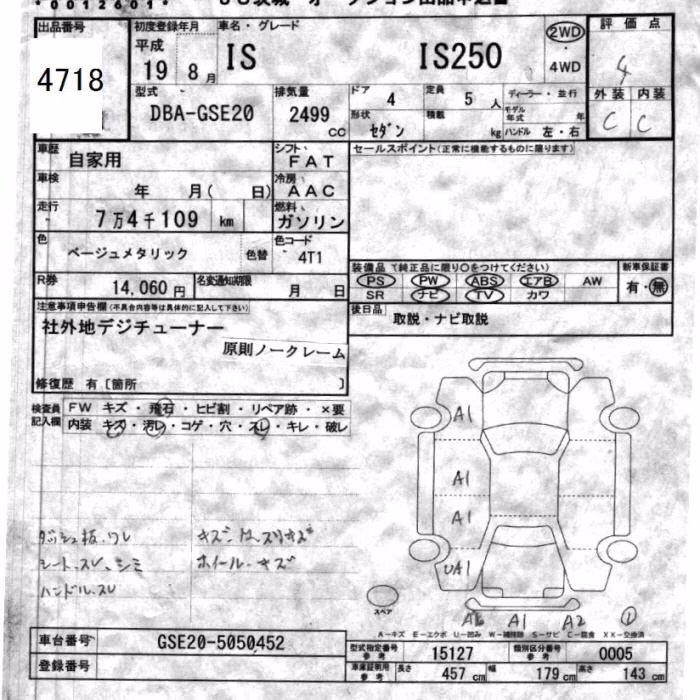 *0012601*
出品番号 4718
初度登録年月 平成 19 8 月
車名・グレード IS IS250
2WD ・ 4WD
評価点 4
外装 内装
C C
型式 DBA-GSE20
排気量 2499 CC
ドア 4 定員 5 人 ディーラー・並行
形状 セダン 積載 kg モデル年式 年
ハンドル 左・右
車歴 自家用
シフト F A T
車検 年 月( 日)
冷房 A A C
走行 7万4千109 km
燃料 ガソリン
色 ベージュメタリック 色替
色コード 4T1
R券 14,060 円 名変通知期限 月 日
セールスポイント(正常に機能するものに限ります)
装備品 (純正品に限り○をつけてください) 新車保証書
PS PW ABS エアB AW 有・無
SR ナビ TV カワ
後日品 取説・ナビ取説
注意事項申告欄(不具合内容等は具体的に記入して下さい)
社外地デジチューナー
原則ノークレーム
修復歴 有〔箇所 〕
検査員記入欄 FW キズ・飛石・ヒビ割・リペア跡・×要
内装 キズ・汚レ・コゲ・穴・スレ・キレ・破レ
A1
A1
A1
UA1
ダッシュ板、ワレ
シート、スレ、シミ ホイール・キズ
ハンドル、スレ
スペア
A1 A2 ①
A-キズ E-エクボ U-凹み W-補修跡 S-サビ C-腐食 XX-交換済
車台番号 GSE20-5050452
登録番号
型式指定番号 参考 15127 類別区分番号 参考 0005
車庫証明用 参考 長さ 457 cm 幅 179 cm 高さ 143 cm